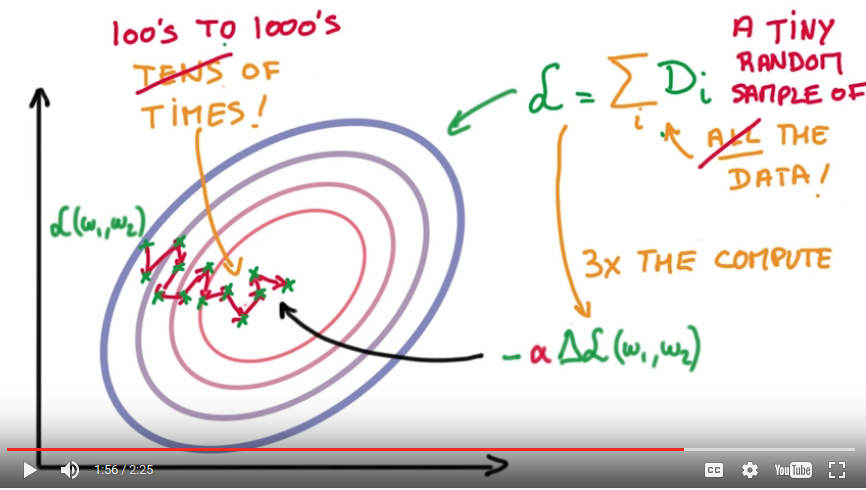 100'S TO 1000'S
TENS OF
TIMES!
A TINY
RANDOM
SAMPLE OF
ℒ = Σ Dᵢ
i
ALL THE
DATA!
ℒ(ω₁,ω₂)
3X THE COMPUTE
-α Δℒ(ω₁,ω₂)
1:56 / 2:25
CC
YouTube